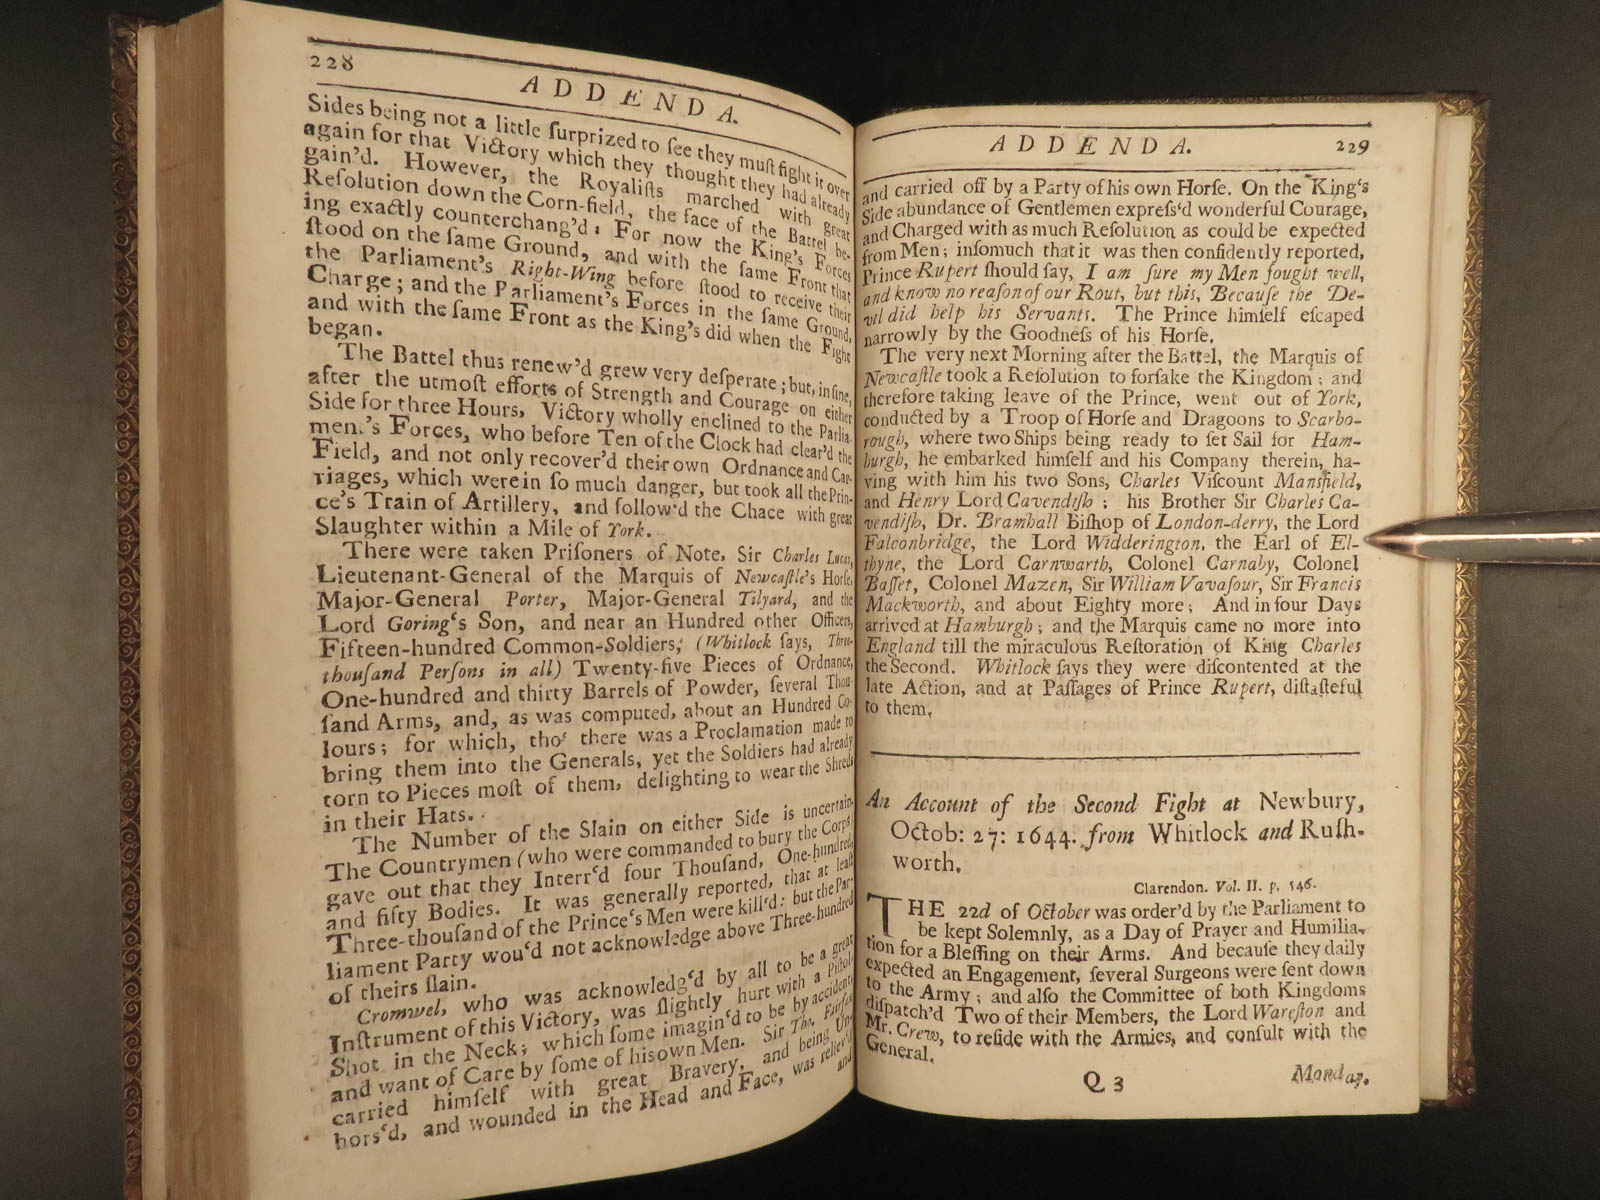 228
ADDENDA.
Sides being not a little ſurprized to ſee they muſt fight it over
again for that Victory which they thought they had already
gain'd. However, the Royaliſts marched with great
Reſolution down the Corn-field, the face of the Battel be-
ing exactly counterchang'd: For now the King's Forces
ſtood on the ſame Ground, and with the ſame Front that
the Parliament's Right-Wing before ſtood to receive their
Charge; and the Parliament's Forces in the ſame Ground,
and with the ſame Front as the King's did when the Fight
began.
The Battel thus renew'd grew very deſperate; but, in fine,
after the utmoſt efforts of Strength and Courage on either
Side for three Hours, Victory wholly enclined to the Parlia-
ment's Forces, who before Ten of the Clock had clear'd the
Field, and not only recover'd their own Ordnance and Car-
riages, which were in ſo much danger, but took all the Prin-
ce's Train of Artillery, and follow'd the Chace with great
Slaughter within a Mile of York.
There were taken Priſoners of Note, Sir Charles Lucas,
Lieutenant-General of the Marquis of Newcaſtle's Horſe,
Major-General Porter, Major-General Tilyard, and the
Lord Goring's Son, and near an Hundred other Officers,
Fifteen-hundred Common-Soldiers, (Whitlock ſays, Three-
thouſand Perſons in all) Twenty-five Pieces of Ordnance,
One-hundred and thirty Barrels of Powder, ſeveral Thou-
ſand Arms, and, as was computed, about an Hundred Co-
lours; for which, tho' there was a Proclamation made to
bring them into the Generals, yet the Soldiers had already
torn to Pieces moſt of them, delighting to wear the Shreds
in their Hats.
The Number of the Slain on either Side is uncertain.
The Countrymen (who were commanded to bury the Corps)
gave out that they Interr'd four Thouſand, One-hundred,
and fifty Bodies. It was generally reported, that at leaſt
Three-thouſand of the Prince's Men were kill'd: but the Par-
liament Party wou'd not acknowledge above Three-hundred
of theirs ſlain.
Cromwel, who was acknowledg'd by all to be a great
Inſtrument of this Victory, was ſlightly hurt with a Piſtol-
Shot in the Neck; which ſome imagin'd to be by accident,
and want of Care by ſome of his own Men. Sir Tho. Fairfax
carried himſelf with great Bravery, and being Un-
hors'd, and wounded in the Head and Face, was reliev'd
and
ADDENDA.
229
and carried off by a Party of his own Horſe. On the King's
Side abundance of Gentlemen expreſs'd wonderful Courage,
and Charged with as much Reſolution as could be expected
from Men; inſomuch that it was then confidently reported,
Prince Rupert ſhould ſay, I am ſure my Men fought well,
and know no reaſon of our Rout, but this, Becauſe the De-
vil did help his Servants. The Prince himſelf eſcaped
narrowly by the Goodneſs of his Horſe.
The very next Morning after the Battel, the Marquis of
Newcaſtle took a Reſolution to forſake the Kingdom; and
therefore taking leave of the Prince, went out of York,
conducted by a Troop of Horſe and Dragoons to Scarbo-
rough, where two Ships being ready to ſet Sail for Ham-
burgh, he embarked himſelf and his Company therein, ha-
ving with him his two Sons, Charles Viſcount Mansfield,
and Henry Lord Cavendiſh; his Brother Sir Charles Ca-
vendiſh, Dr. Bramhall Biſhop of London-derry, the Lord
Falconbridge, the Lord Widderington, the Earl of El-
thyne, the Lord Carnwarth, Colonel Carnaby, Colonel
Baſſet, Colonel Mazen, Sir William Vavaſour, Sir Francis
Mackworth, and about Eighty more; And in four Days
arrived at Hamburgh; and the Marquis came no more into
England till the miraculous Reſtoration of King Charles
the Second. Whitlock ſays they were diſcontented at the
late Action, and at Paſſages of Prince Rupert, diſtaſteful
to them.
An Account of the Second Fight at Newbury,
Octob: 27: 1644. from Whitlock and Ruſh-
worth.
Clarendon. Vol. II. p. 546.
THE 22d of October was order'd by the Parliament to
be kept Solemnly, as a Day of Prayer and Humilia-
tion for a Bleſſing on their Arms. And becauſe they daily
expected an Engagement, ſeveral Surgeons were ſent down
to the Army; and alſo the Committee of both Kingdoms
diſpatch'd Two of their Members, the Lord Wareſton and
Mr. Crew, to reſide with the Armies, and conſult with the
General.
Q 3
Monday,